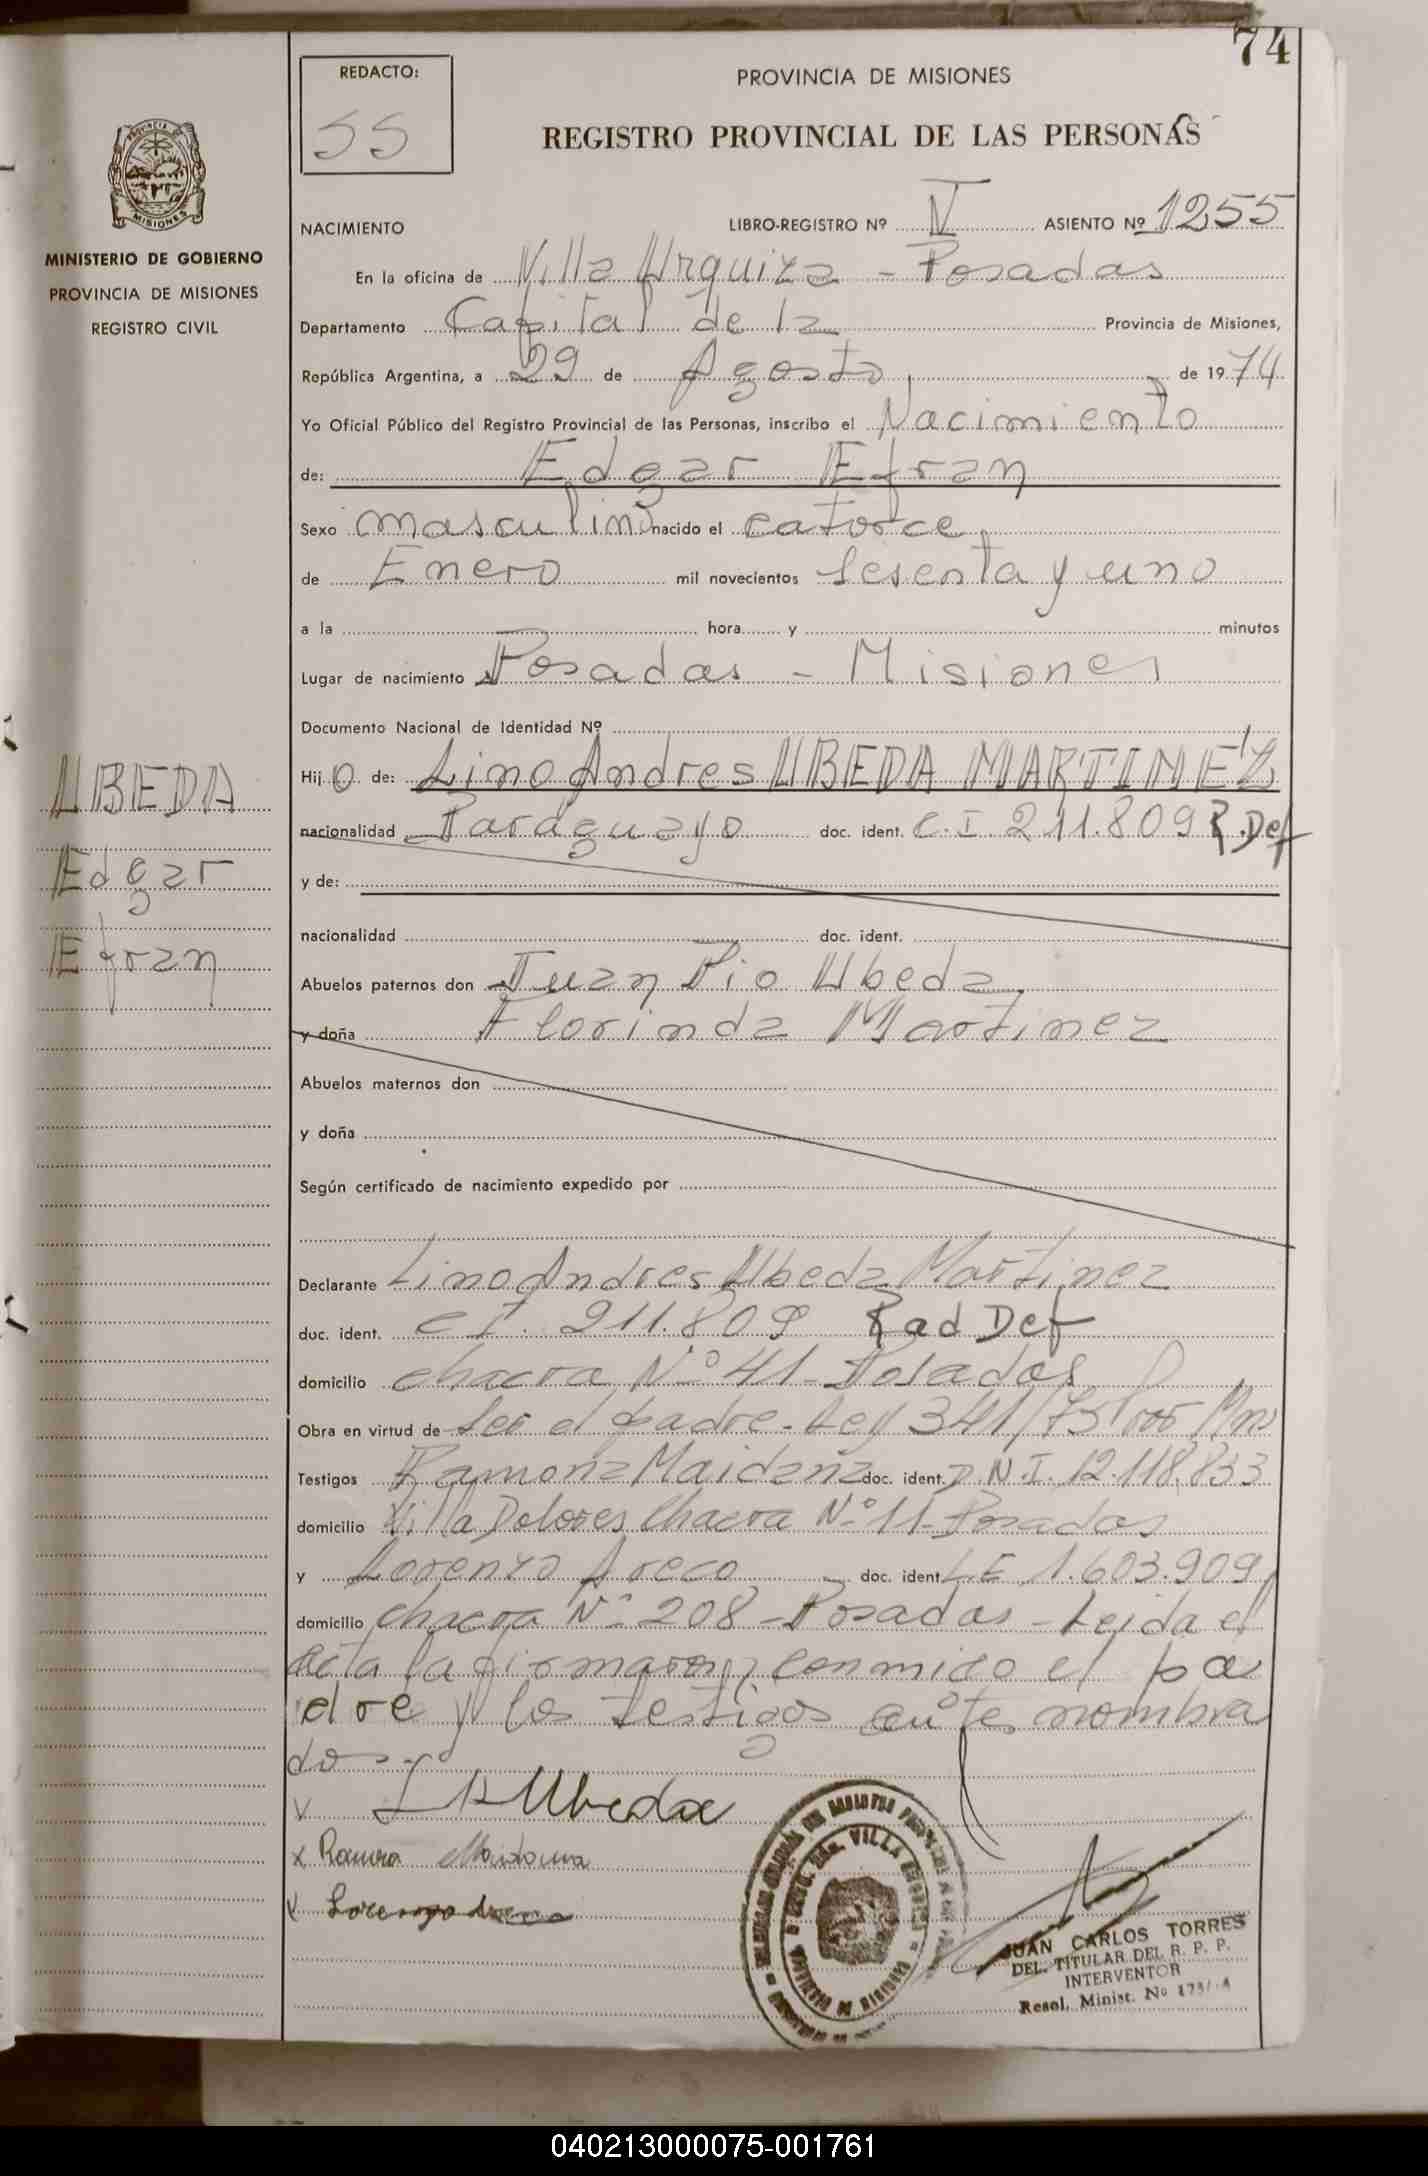 74
REDACTO:
SS
PROVINCIA DE MISIONES
REGISTRO PROVINCIAL DE LAS PERSONAS
PROVINCIA DE
MISIONES
MINISTERIO DE GOBIERNO
PROVINCIA DE MISIONES
REGISTRO CIVIL
NACIMIENTO LIBRO-REGISTRO Nº IV ASIENTO Nº 1255
En la oficina de Villa Urquiza - Posadas
Departamento Capital de la Provincia de Misiones,
República Argentina, a 29 de Agosto, de 1974
Yo Oficial Público del Registro Provincial de las Personas, inscribo el Nacimiento
de: Edgar Efran
Sexo masculino nacido el catorce
de Enero mil novecientos sesenta y uno
a la hora y minutos
Lugar de nacimiento Posadas - Misiones
Documento Nacional de Identidad Nº
Hijo de: Lino Andres UBEDA MARTINEZ
nacionalidad Paraguayo doc. ident. C.I. 211.809 R.Def
y de:
nacionalidad doc. ident.
Abuelos paternos don Juan Pio Ubeda
y doña Florinda Martinez
Abuelos maternos don
y doña
Según certificado de nacimiento expedido por
Declarante Lino Andres Ubeda Martinez
doc. ident. CI. 211.809 Rad Def
domicilio chacra Nº 41 - Posadas
Obra en virtud de ser el padre. Ley 341/73
Testigos Ramona Maidana doc. ident. D.N.I. 12.118.833
domicilio Villa Dolores Chacra Nº 11 - Posadas
y Lorenzo Areco doc. ident. LE 1.603.909
domicilio chacra Nº 208 - Posadas - Leida el
acta la firmaron conmigo el pa
dre y los testigos antes nombra
dos.-
UBEDA
Edgar
Efran
V L A Ubeda
x Ramona Maidana
x Lorenzo Areco
VILLA URQUIZA
JUAN CARLOS TORRES
DEL. TITULAR DEL R. P. P.
INTERVENTOR
Resol. Minist. Nº
040213000075-001761